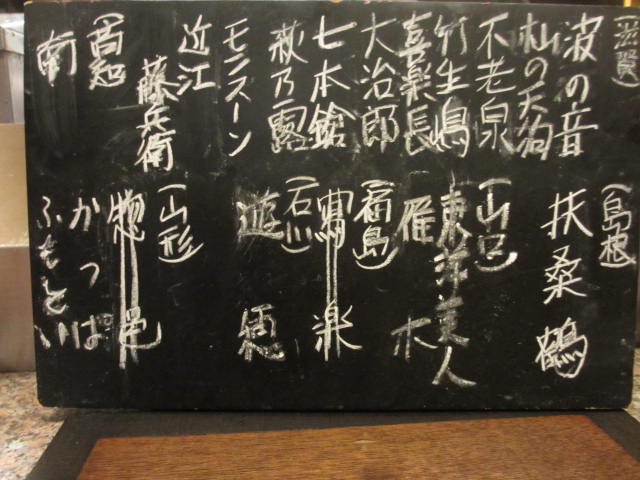 (滋賀)
波の音
杣の天狗
不老泉
竹生嶋
喜楽長
大治郎
七本鎗
萩乃露
モンスーン
近江
藤兵衛
(高知)
南
(島根)
扶桑鶴
(山口)
東洋美人
雁木
(福島)
寫楽
(石川)
遊穂
(山形)
惣邑
かっぱ
ふもとい